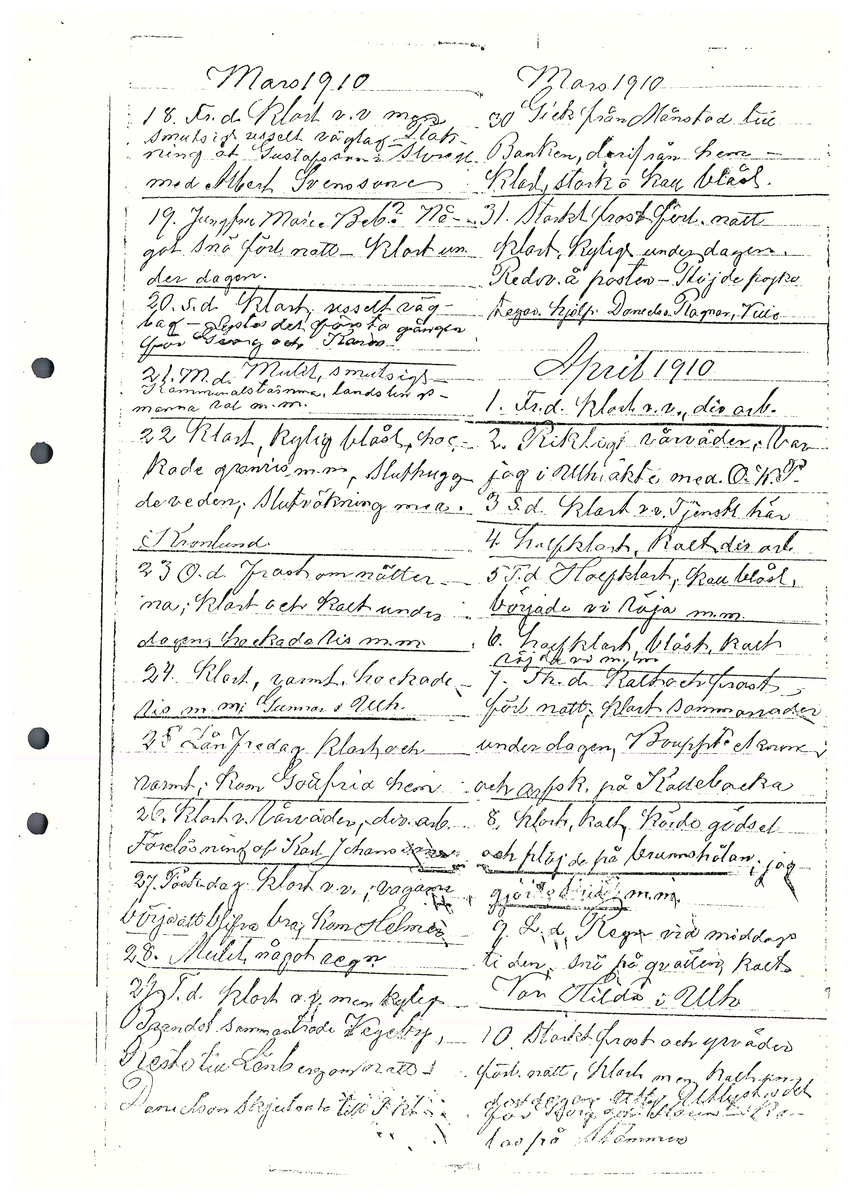 Mars 1910
18. Fr.d. Klart v.v men
smutsigt usselt väglag
åt Gustafsson i
med Albert Svensson
19. Jungfru Marie Beb.? Nå-
got snö förb. natt - Klart un
der dagen.
20. S.d. Klart, usselt väg-
lag - Lystes det första gången
för Georg och Karin
21. M.d. Mulit, smutsigt -
Kommunalstämma, landstings-
manna val m.m.
22 Klart, Kylig blåst, hac-
kade granris m.m., Sluthugg
de veden, Sluträkning med
Kronlund
23 O.d. frost om nätter-
na, Klart och Kalt under
dagen, hackade ris m.m.
24. Klart, varmt, hackade
ris m.m. Gunnar i Ulh.
25 Lån Fredag Klart och
varmt, Kom Gotfrid hem
26. Klart v. Vårväder, div. arb.
Föreläsning af Karl Johans
27. Påskdag Klart v.v., vägarne
börja att blifva bra, Kom Helmer
28. Mulit, något regn
29 T.d. Klart v.v. men kylig
Brandst. sammanträde Vegeby,
Reste till Lönberg om natt
Danielson skjutsade till
Mars 1910
30 Gick från Månstad till
Banken, derifrån hem -
Klart, stark o Kall blåst.
31. Starkt frost förb. natt
Klart, Kyligt under dagen.
Redov. å posten - Plöjde
hjelp Ragnar,
April 1910
1. Fr.d. Klart v.v., div arb.
2. Riktigt vårväder, Var
jag i Ulh: åkte med O.K.P.
3 S.d. Klart v.v. Tjenst här
4. halfklart, Kalt div arb
5 T.d. Halfklart, Kall blåst,
började vi röja m.m.
6. halfklart, blåst, Kalt
röjde vi m.m
7. Th.d. Kalt och frost
förb. natt, Klart sommarväder
under dagen, Boupptekn
och på Kådebacka
8. Klart, Kalt, Körde gödsel
och plöjde på brunnshålan, jag
m.m.
9. L.d. Regn vid middags
tiden, snö på qvällen, Kalt
Var Hilda i Ulh
10. Starkt frost och yrväder
förb. natt, Klart men Kalt un-
der dagen Utlystes det
för Georg och Karin
på